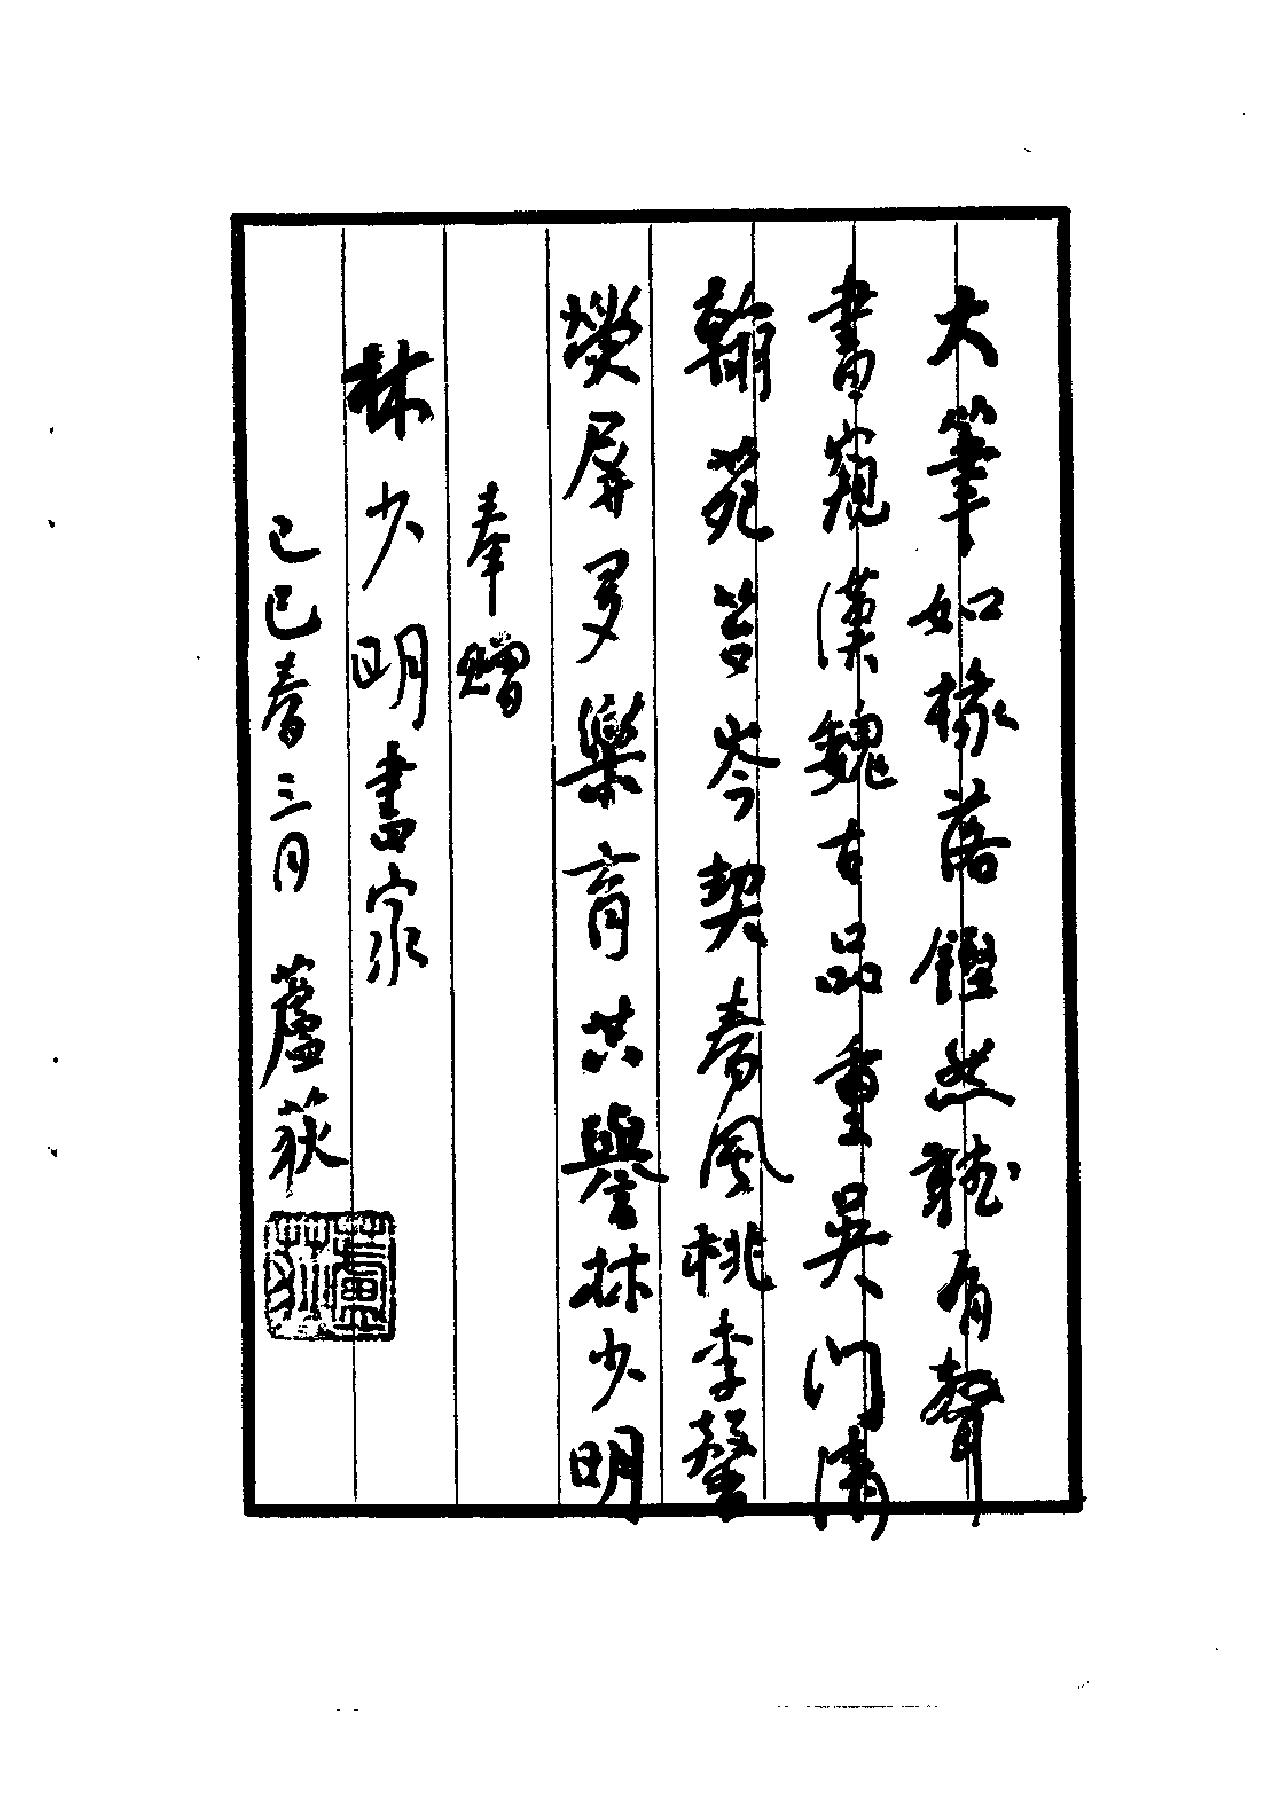 大筆如椽落鏗然聽有聲
書窺漢魏古品重吳門清
翰苑苔岑契春風桃李馨
熒屏多樂育共譽林少明
奉贈
林少明書家
己巳春三月 蘆荻
蘆荻